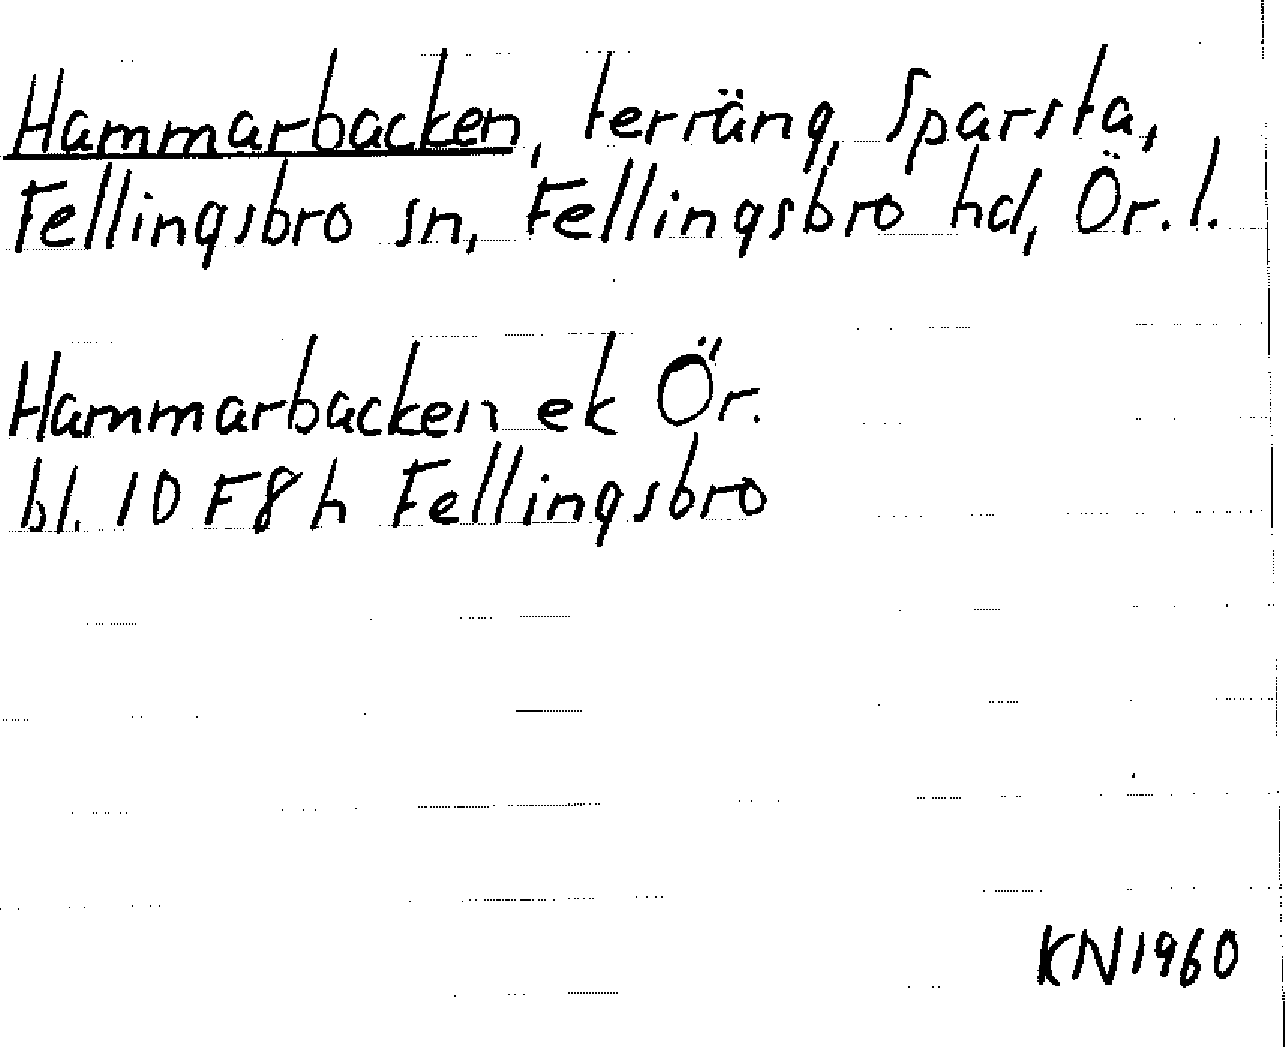 Hammarbacken, terräng, Sparsta,
Fellingsbro sn, Fellingsbro hd, Ör. l.
Hammarbacken ek Ör.
bl. 10 F8h Fellingsbro
KN1960